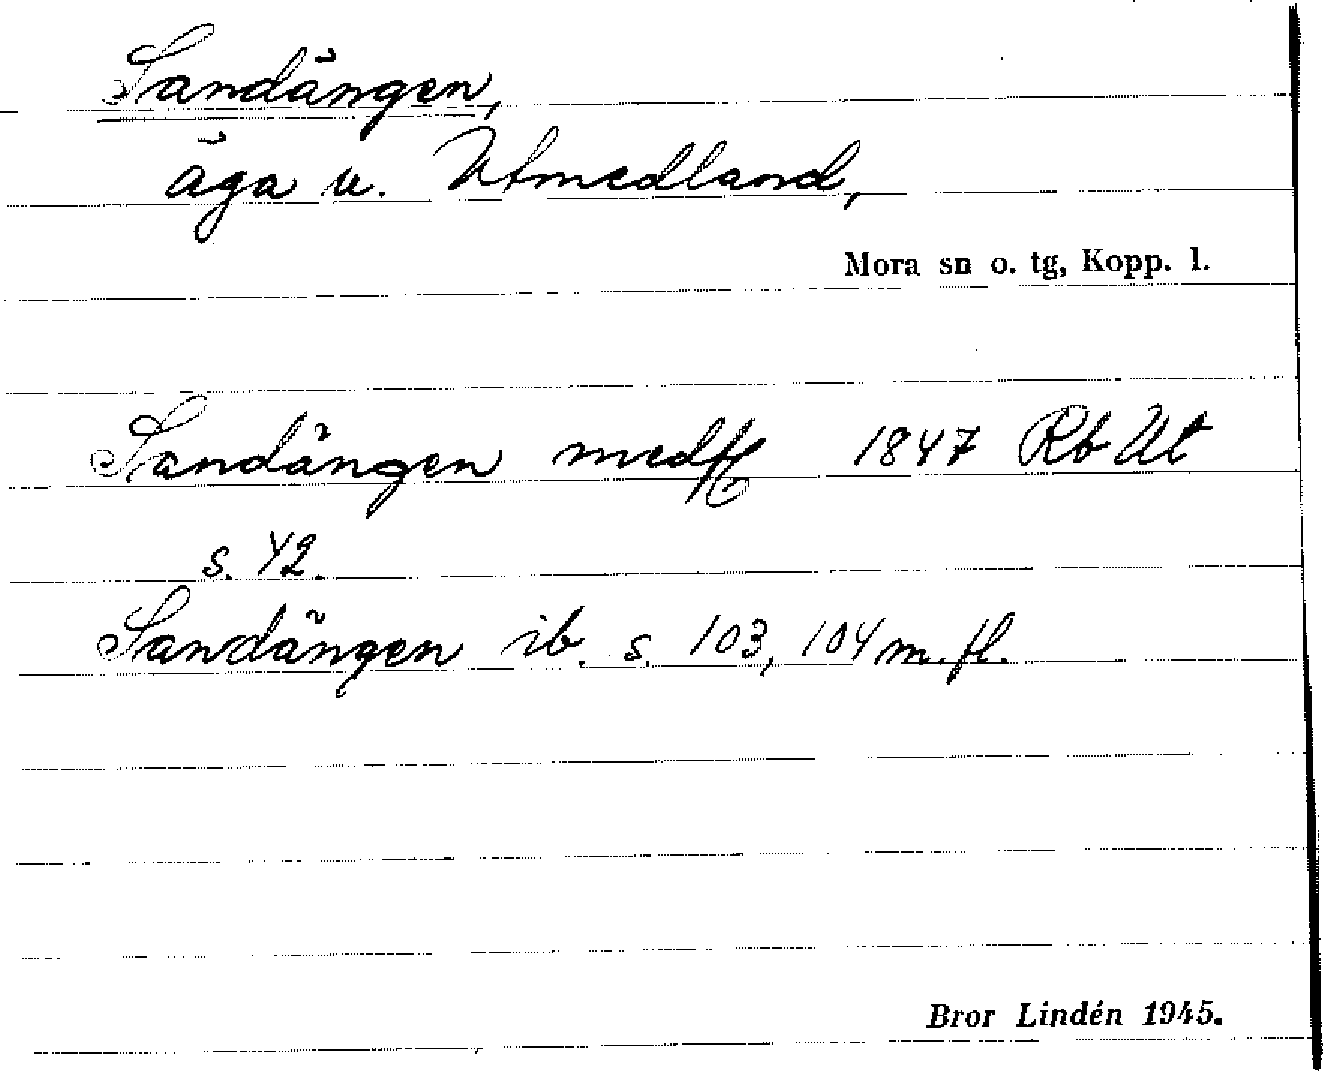 Sandängen,
äga u. Utmedland,
Mora sn o. tg, Kopp. l.
Sandängen 1847 Rb Ut
s. 42.
Sandängen ib. s. 103, 104 m. fl.
Bror Lindén 1945.